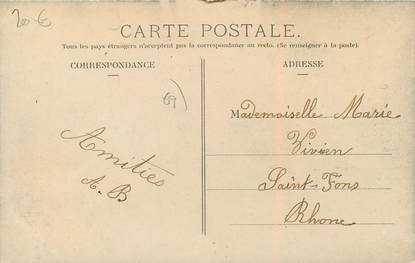 20-6
CARTE POSTALE.
Tous les pays étrangers n'acceptent pas la correspondance au recto. (Se renseigner à la poste).
CORRESPONDANCE
ADRESSE
69
Amitiés
A-B
Mademoiselle Marie
Vivien
Saint-Fons
Rhone